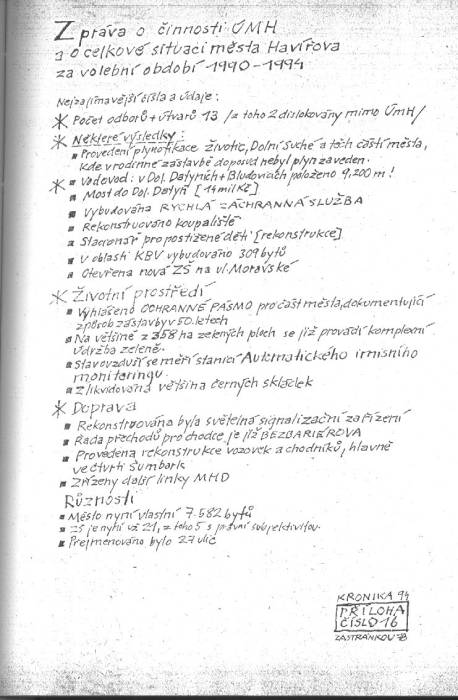 Zpráva o činnosti ÚMH
a o celkové situaci města Havířova
za volební období 1990-1994
Nejzajímavější čísla a údaje:
* Počet odborů + útvarů 13 /z toho 2 dislokovány mimo ÚMH/
* Některé výsledky:
▪ Provedení plynofikace Životic, Dolní Suché a těch částí města,
kde v rodinné zástavbě doposud nebyl plyn zaveden.
* ▪ Vodovod: v Dol. Datyních + Bludovicích položeno 9.200 m!
▪ Most do Dol. Datyň [14 mil Kč]
▪ Vybudována RYCHLÁ ZÁCHRANNÁ SLUŽBA
▪ Rekonstruováno koupaliště
▪ Stacionář pro postižené děti [rekonstrukce]
▪ V oblasti KBV vybudováno 309 bytů
▪ Otevřena nová ZŠ na ul. Moravské
* Životní prostředí
▪ Vyhlášeno OCHRANNÉ PÁSMO pro část města, dokumentující
způsob zástavby v 50. letech
▪ Na většině z 358 ha zelených ploch se již provádí komplexní
údržba zeleně.
▪ Stav ovzduší se měří stanicí Automatického imisního
monitoringu.
▪ Zlikvidována většina černých skládek
* Doprava
▪ Rekonstruována byla světelná signalizační zařízení
▪ Řada přechodů pro chodce je již BEZBARIÉROVÁ
▪ Provedena rekonstrukce vozovek a chodníků, hlavně
ve čtvrti Šumbark
▪ Zřízeny další linky MHD
Různosti
▪ Město nyní vlastní 7.582 bytů
▪ ZŠ je nyní už 21, z toho 5 s právní subjektivitou.
▪ Přejmenováno bylo 27 ulic
KRONIKA 94
PŘÍLOHA
ČÍSLO 16
ZA STRÁNKOU 78